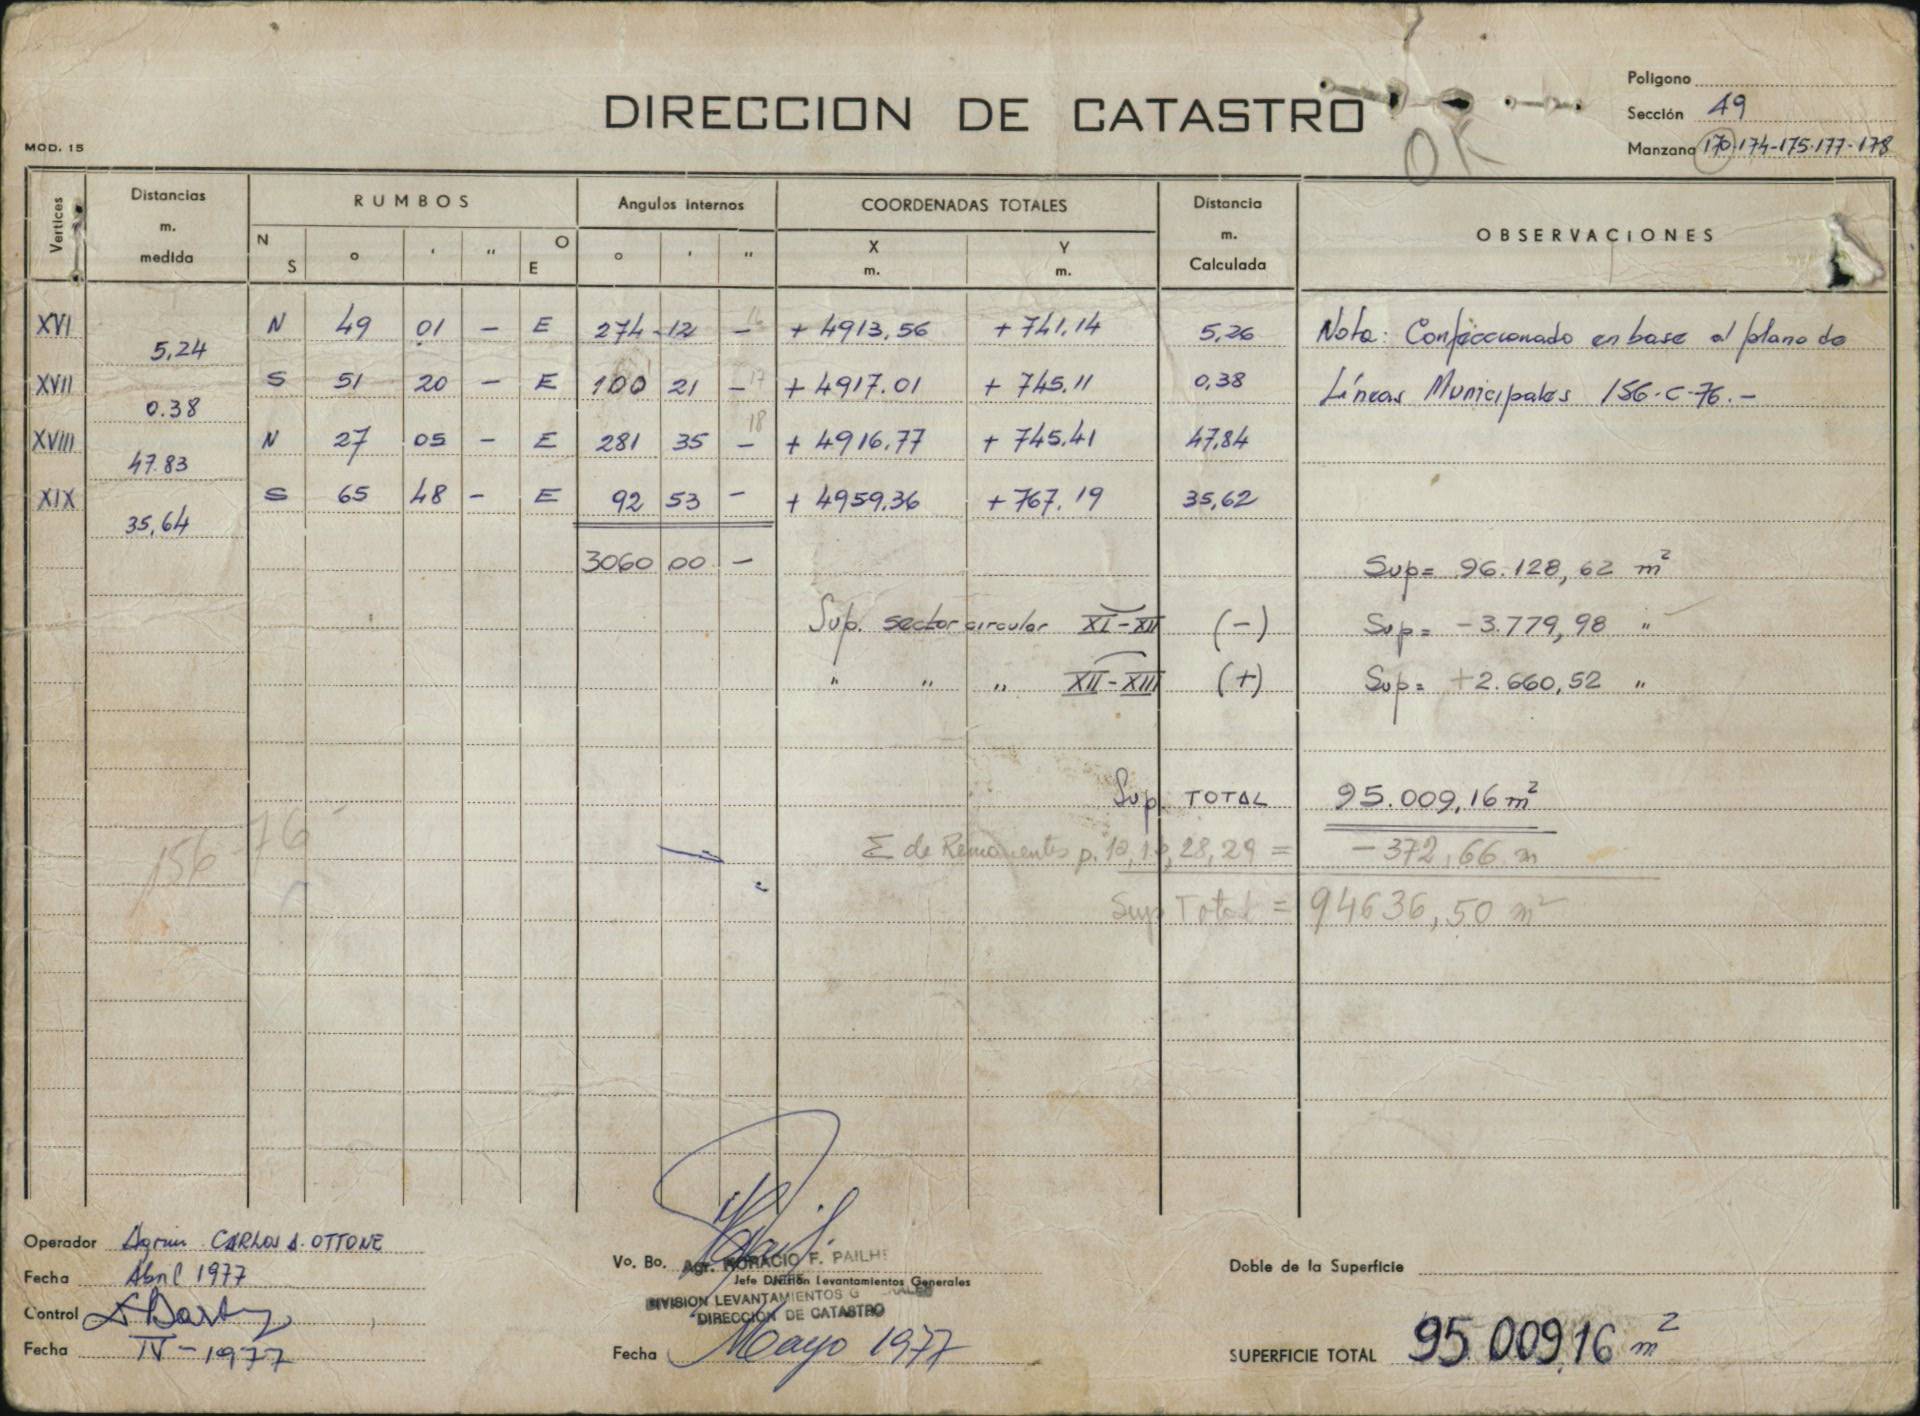 DIRECCION DE CATASTRO
OK
Polígono
Sección 49
Manzana 170-174-175-177-178
MOD. 15
Vertices
Distancias m. medida
RUMBOS
Angulos internos
COORDENADAS TOTALES
Distancia m. Calculada
OBSERVACIONES
N S ° ' " O E ° ' " X m. Y m.
XVI N 49 01 - E 274 12 - 16 + 4913,56 + 741.14 5,26 Nota: Confeccionado en base al plano de
5,24
XVII S 51 20 - E 100 21 - 17 + 4917.01 + 745.11 0,38 Líneas Municipales 156-C-76.-
0.38
18
XVIII N 27 05 - E 281 35 - + 4916.77 + 745.41 47,84
47.83
XIX S 65 48 - E 92 53 - + 4959.36 + 767.19 35,62
35,64
3060 00 - Sup= 96.128,62 m²
Sup. sector circular XI-XII (-) Sup= -3.779,98 "
" " " XII-XIII (+) Sup= +2.660,52 "
Sup. TOTAL 95.009,16 m²
156-76
Σ de Remanentes p. 28, 29 = -372,66 m
Sup Total = 94636,50 m²
Operador Agrim CARLOS A. OTTONE
Fecha Abril 1977
Control
Fecha IV-1977
Vo. Bo. Agr. HORACIO F. PAILHE
Jefe División Levantamientos Generales
DIVISION LEVANTAMIENTOS GENERALES
DIRECCION DE CATASTRO
Fecha Mayo 1977
Doble de la Superficie
SUPERFICIE TOTAL 95.009,16 m²